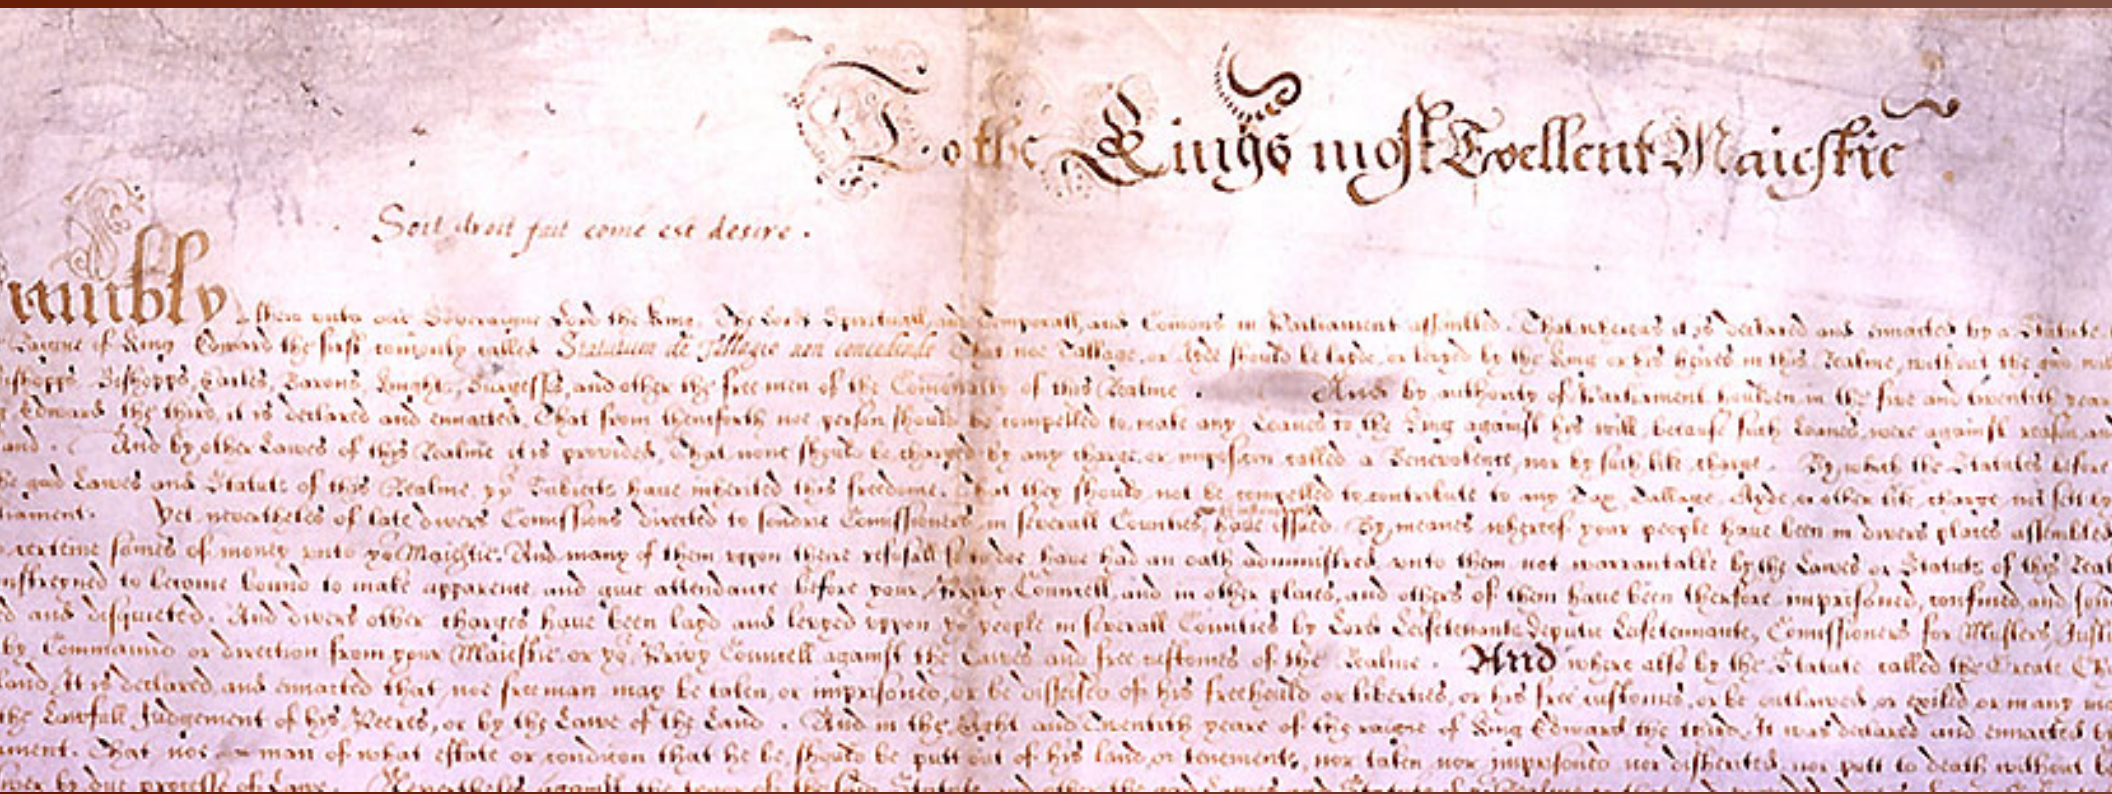 To the Kings most Excellent Maiestie
Soit droit fait come est desire.
umbly shew unto our Soveraigne Lord the King, the Lords Spirituall and Temporall, and Comons in Parliament assembled. That whereas it is declared and enacted by a Statute
Raigne of King Edward the first comonly called Statutum de Tallagio non concedendo That noe Tallage, or Ayde should be layde, or levyed by the King or his heires in this Realme, without the good will
Bishopps, Earles, Barons, Knights, Burgesses, and other the free men of the Comonalty of this Realme. And by authority of Parliament houlden in the five and twentith yeare
Edward the third, it is declared and enacted, That from thenceforth noe person should be compelled to make any Loanes to the King against his will, because such Loanes were against reason, and
land. And by other Lawes of this Realme it is provided, That none should be charged by any charge or imposicion called a Benevolence, nor by such like charge. By which the Statutes before
good Lawes and Statuts of this Realme yor Subiects have inherited this freedome. That they should not be compelled to contribute to any Tax, Tallage, Ayde, or other like charge not sett by
liament. Yet nevertheles of late divers Comissions directed to sondrie Comissioners in severall Counties have issued. By meanes whereof your people have been in divers places assembled
somes of money unto yor Maiestie. And many of them uppon there refusall so to doe have had an oath administred unto them not warrantable by the Lawes or Statuts of this
to become bound to make apparence and give attendance before your Privy Councell, and in other places, and others of them have been therefore imprisoned, confined, and
and disquieted. And divers other charges have been layd and levyed uppon yor people in severall Counties by Lords Deputie Comissioners for Musters,
by Commaund or direction from your Maiestie or yor Privy Councell against the Lawes and free customes of the Realme. And where also by the Statute called the Create
land, It is declared and enacted that noe freeman may be taken, or imprisoned, or be disseised of his freehould or liberties, or his free customes, or be outlawed, or exiled or in any
the Lawfull Judgement of his Peeres, or by the Lawe of the Land. And in the eight and twentith yeare of the raigne of King Edward the third, It was declared and enacted by
ament. That noe man of what estate or condicion that he be, should be putt out of his land, or tenements, nor taken nor imprisoned nor disherited, nor putt to death without
by due processe of Lawe. Nevertheles against the tenor of the said Statuts